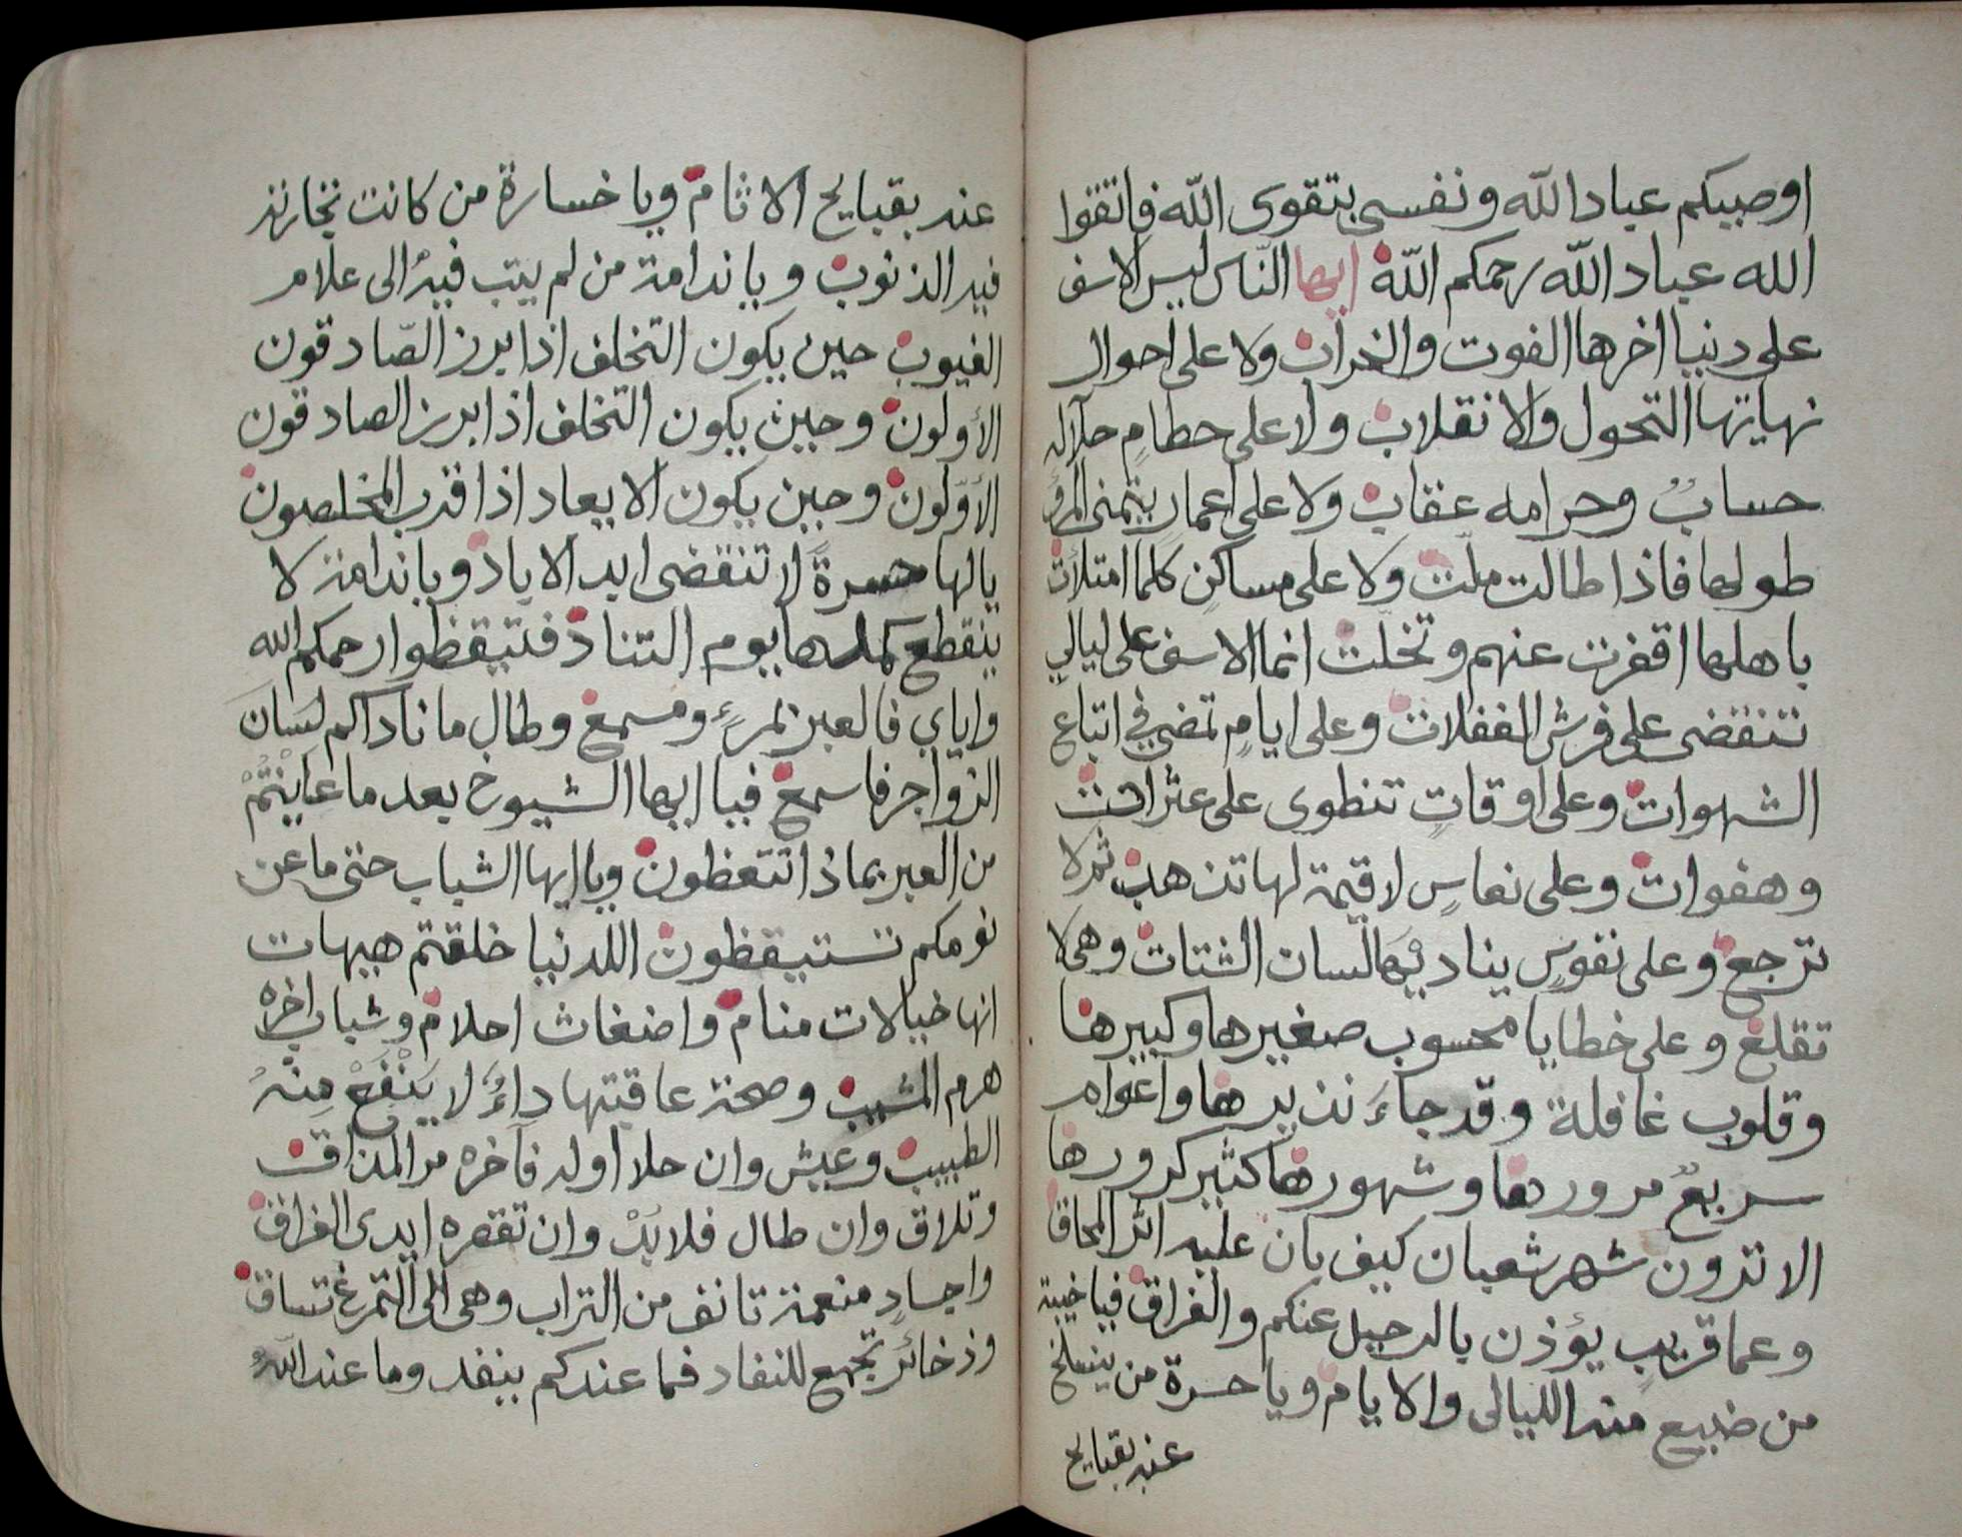 اوصيكم عباد الله ونفسي بتقوى الله فاتقوا
الله عباد الله رحمكم الله ايها النّاس ليس الاسف
على دنيا اخرها الفوت والخراب ولا على احوال
نهايتها التحول والانقلاب ولا على حطامٍ حلاله
حسابٌ وحرامه عقاب ولا على اعمارٍ يتمنى المرؤ
طولها فاذا طالت ملّت ولا على مساكنٍ كلما امتلأت
باهلها اقفرت عنهم وتخلّت انما الاسف على ليالي
تنقضى على فرش الغفلات وعلى ايامٍ تمضي في اتباع
الشهوات وعلى اوقاتٍ تنطوى على عثرات
وهفوات وعلى نفاسٍ لا قيمة لها تذهب ثم لا
ترجع وعلى نفوسٍ يناديها لسان الشتات وهي لا
تقلع وعلى خطايا محسوب صغيرها وكبيرها
وقلوب غافلة وقد جاءَ نذيرها واعوام
سريعٌ مرورها وشهورها كثير كرورها
الا ترون شهر شعبان كيف بان عليه اثر المحاق
وعما قريبٍ يؤذن بالرحيل عنكم والفراق فيا خيبة
من ضيع منه الليالى والايام ويا حسرة من ينسلخ
عنه بقبايح
عنه بقبايح الاثام ويا خسارة من كانت تجارته
فيه الذنوب ويا ندامة من لم يتب فيه الى علام
الغيوب حين يكون التخلف اذا برز الصّادقون
الأولون وحين يكون التخلف اذا برز الصادقون
الأوّلون وحين يكون الابعاد اذا قرب المخلصون
يا لها حسرةً لا تنقضى ابد الاباد ويا ندامة لا
ينقطع كمدها يوم التناد فتيقظوا رحمكم الله
واياي فالعبر بمرءٍ ومسمع وطال ما ناداكم لسانَ
الزواجر فاسمع فيا ايها الشيوخ بعد ما عَايَنْتُمْ
من العبر بماذا تتعظون ويا ايها الشباب حتى ما عن
نومكم تستيقظون اللدنيا خلقتم هيهات
انها خيالات منام واضغاث احلام وشباب اخره
هرم المشيب وصحة عاقبتها داءٌ لا يَنْفَعْ مِنْهُ
الطبيب وعيش وان حلا اوله فآخره مر المذاق
وتلاق وان طال فلا بُدْ وان تقصره ايدى الفراق
واجسادٍ منعمة تانف من التراب وهى الى التمرغ تساق
وذخائر تجمع للنفاد فما عندكم ينفد وما عند اللهُ